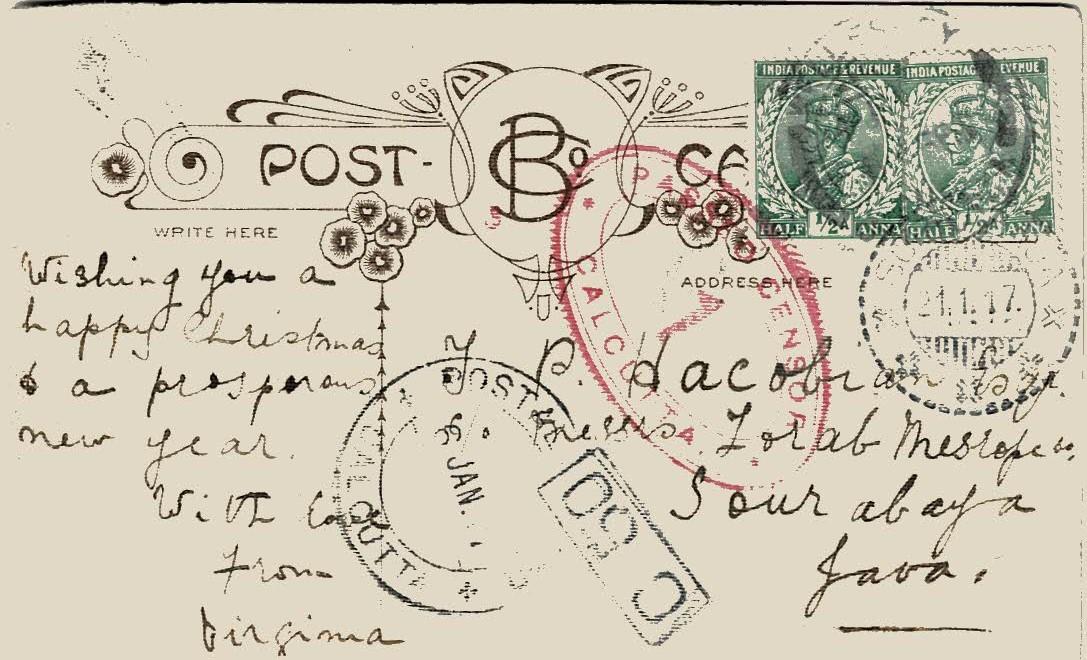 POST-
INDIA POSTAGE & REVENUE
HALF 1/2A ANNA
INDIA POSTAGE REVENUE
HALF 1/2A ANNA
WRITE HERE
ADDRESS HERE
Wishing you a
happy Christmas
& a prosporous
new year.
With love
From
Virginia
J. P. Jacobian Esqr.
Messrs. Zorab Mesrope &co,
Sourabaya
Java.
PASSED CENSOR CALCUTTA
21.1.17.
CALCUTTA
JAN.